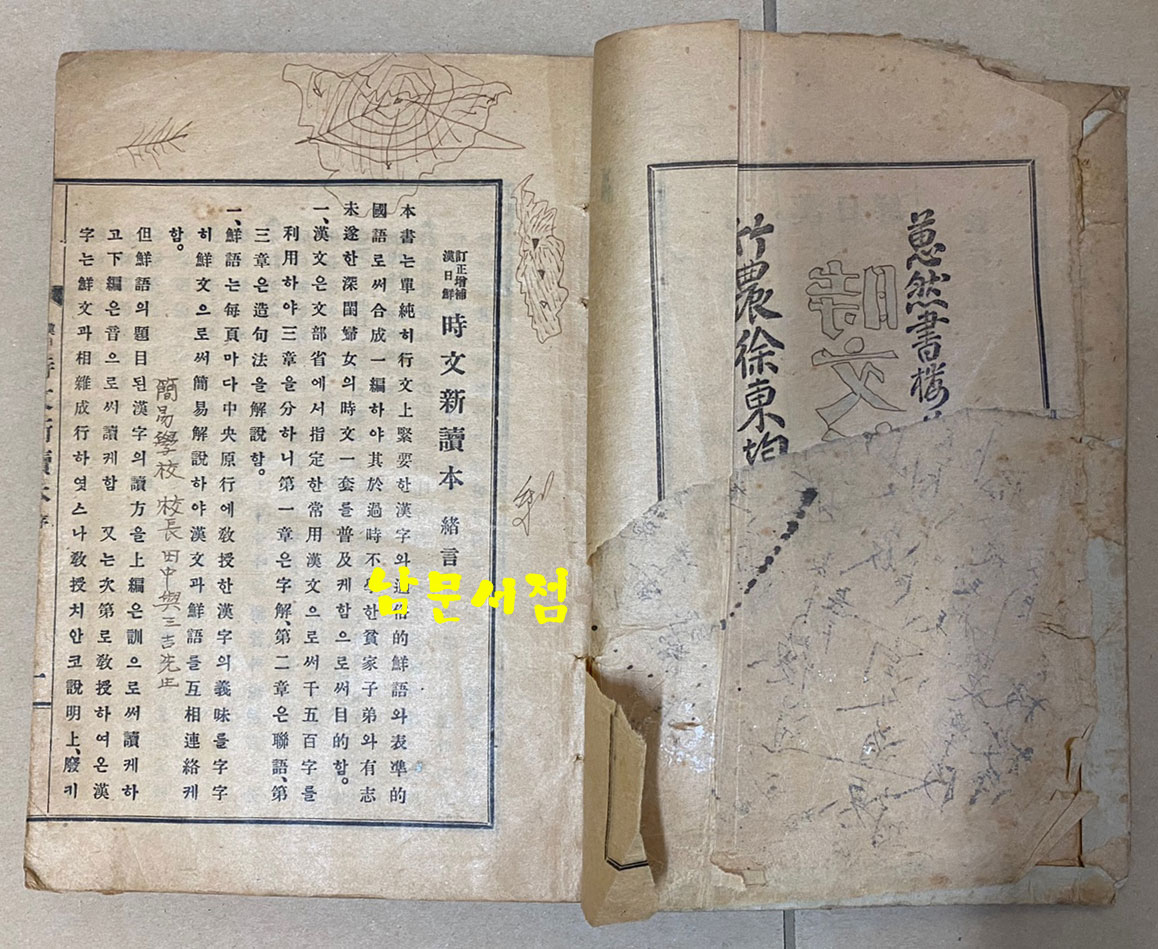 葱然書樓
竹農徐東均
訂正增補
漢日鮮
時文新讀本 緒言
本書는單純히行文上緊要한漢字와通俗的鮮語와表準的
國語로써合成一編하야其於過時不學한貧家子弟와有志
未遂한深閨歸女의時文一套를普及케함으로써目的함。
一、漢文은文部省에서指定한常用漢文으로써千五百字를
利用하야三章을分하니第一章은字解、第二章은聯語、第
三章은造句法을解說함。
一、鮮語는每頁마다中央原行에敎授한漢字의義味를字字
히鮮文으로써簡易解說하야漢文과鮮語를互相連絡케
함。
簡易學校 校長 田中與三吉先生
但鮮語의題目된漢字의讀方을上編은訓으로써讀케하
고下編은音으로써讀케함 又는次第로敎授하여온漢
字는鮮文과相雜成行하엿스나敎授치안코說明上、廢키
一
남문서점